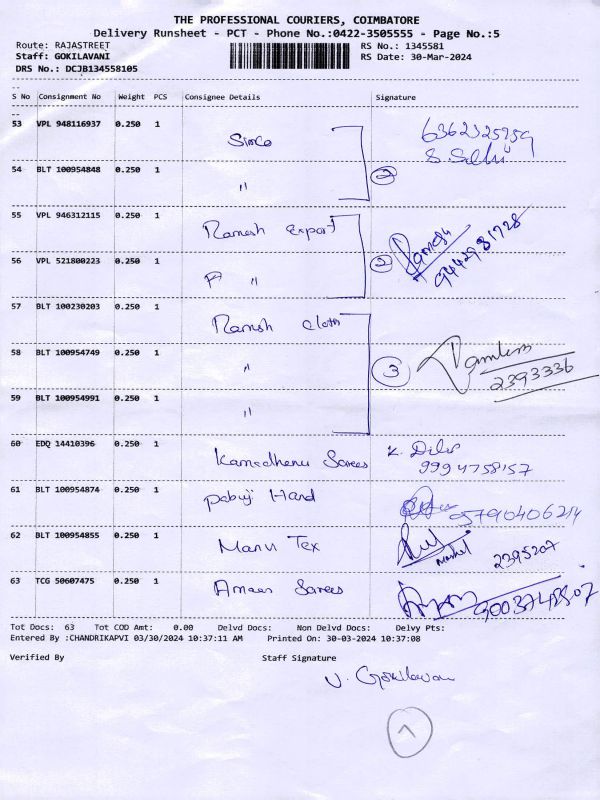 THE PROFESSIONAL COURIERS, COIMBATORE
Delivery Runsheet - PCT - Phone No.:0422-3505555 - Page No.:5
Route: RAJASTREET RS No.: 1345581
Staff: GOKILAVANI RS Date: 30-Mar-2024
DRS No.: DCJB134558105
S No Consignment No Weight PCS Consignee Details Signature
53 VPL 948116937 0.250 1 Simco
S. Selvi
54 BLT 100954848 0.250 1 " 2
55 VPL 946312115 0.250 1 Ramesh Export
56 VPL 521800223 0.250 1 " 2 Ramesh 9442981728
57 BLT 100230203 0.250 1 Ramesh cloth
58 BLT 100954749 0.250 1 " 3 2393336
59 BLT 100954991 0.250 1 "
60 EDQ 14410396 0.250 1 Kamadhenu Sarees
9994758157
61 BLT 100954874 0.250 1 pabuji Hand
62 BLT 100954855 0.250 1 Manu Tex 2395207
63 TCG 50607475 0.250 1 Amaan Sarees
Tot Docs: 63 Tot COD Amt: 0.00 Delvd Docs: Non Delvd Docs: Delvy Pts:
Entered By :CHANDRIKAPVI 03/30/2024 10:37:11 AM Printed On: 30-03-2024 10:37:08
Verified By Staff Signature
V. Gokilavani